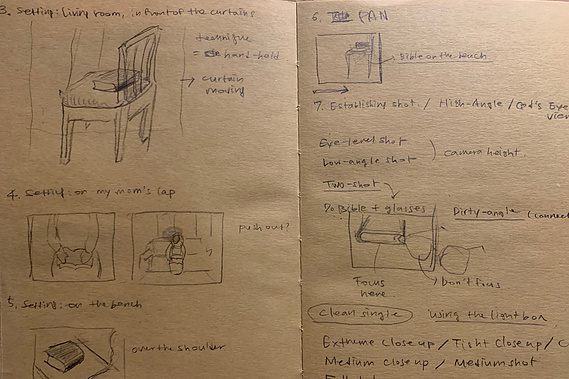 3. Setting: Living room, in front of the curtains
technique
= hand-hold
→ curtain
moving
4. Setting: on my mom's lap
push out?
5. Setting: on the bench
over the shoulder
6. PAN
Bible on the bench
7. Establishing shot / High-Angle / God's Eye
view
Eye-level shot
Low-angle shot
camera height
Two-shot
Do Bible + glasses
Dirty-angle (connect
Focus
here
Don't focus
clean-single
using the light box
Extreme close up / Tight close up / C
Medium close up / Medium shot